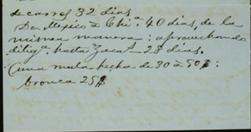 de carros 32 dias
De Mexico á Chi.ª 40 dias, de la
misma manera: aprovechando
dilig.ª hasta Zacat.ˢ 28 dias.
Cuna mula hecha de 30 a 50$:
bronca 25$